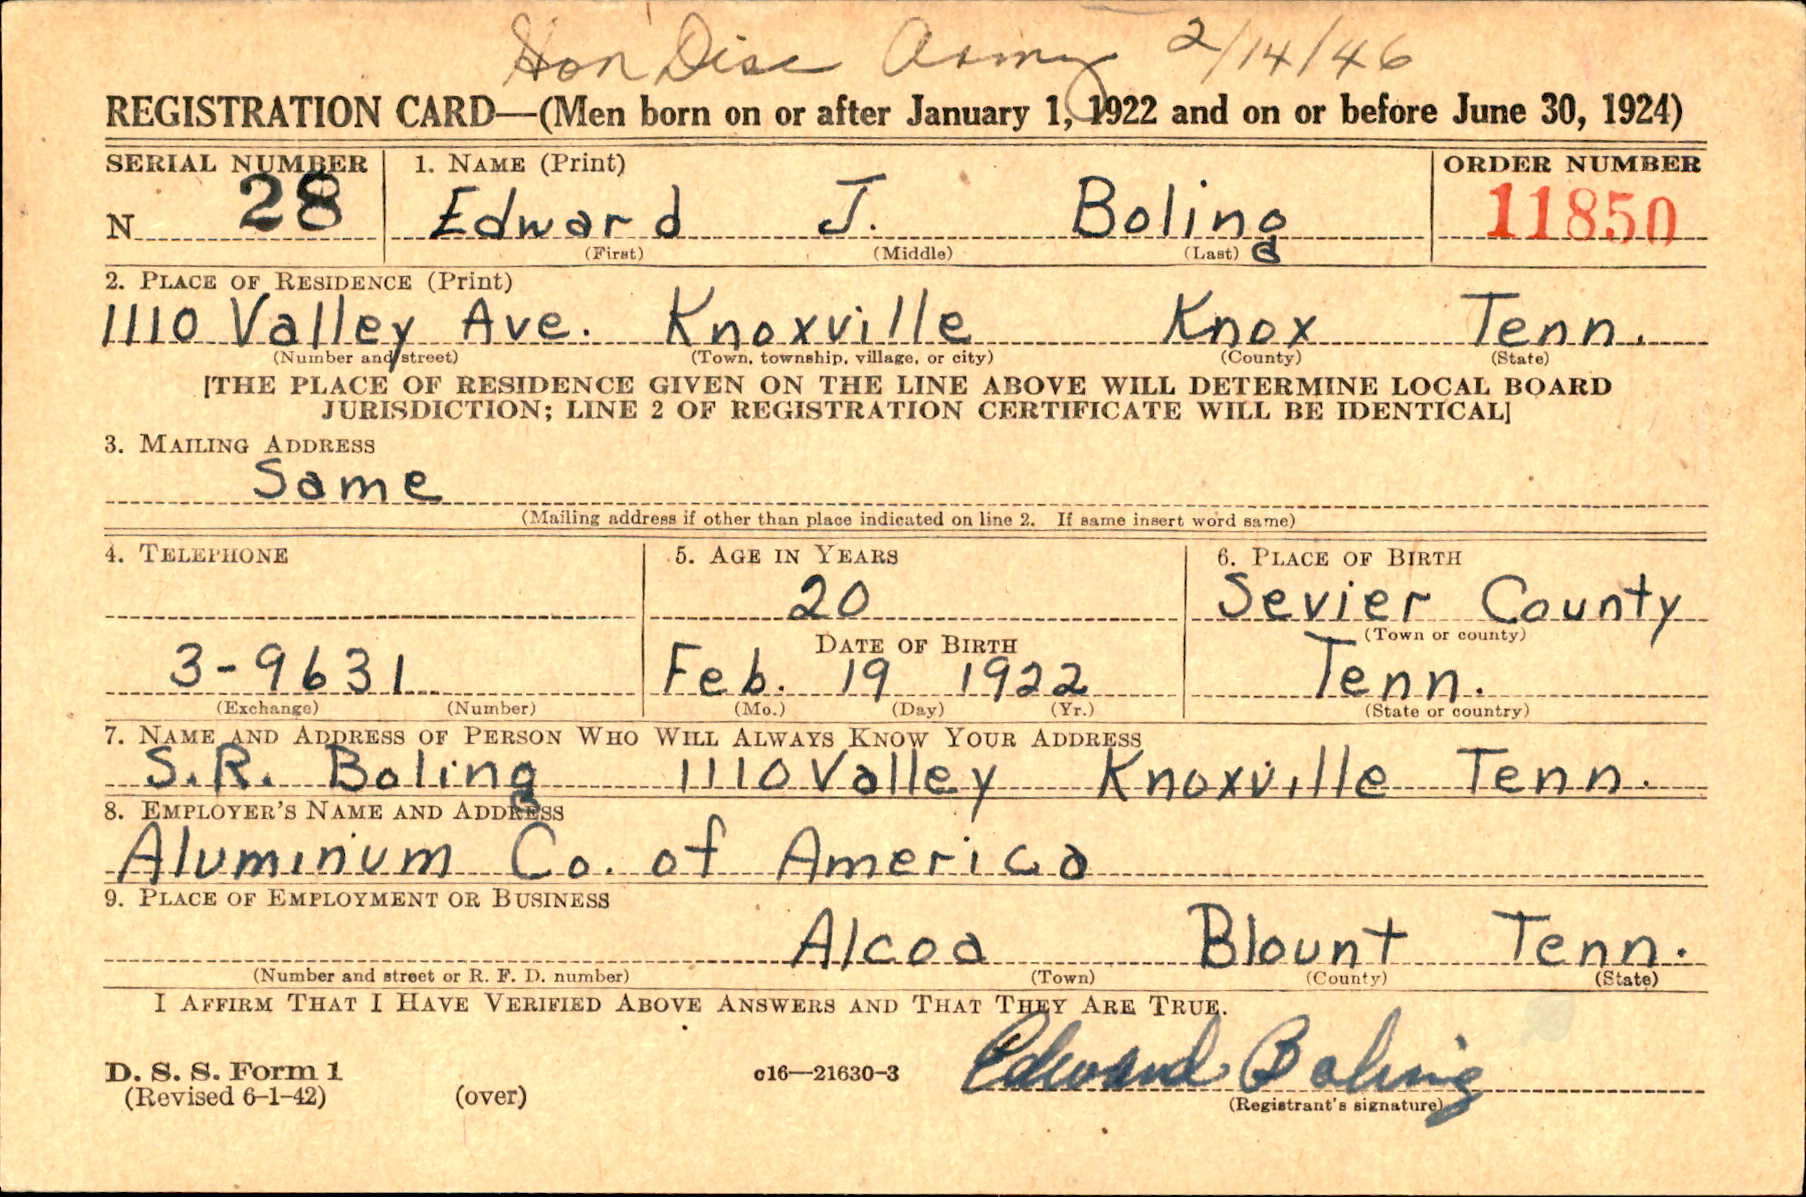 Hon Disc Army 2/14/46
REGISTRATION CARD—(Men born on or after January 1, 1922 and on or before June 30, 1924)
SERIAL NUMBER 1. NAME (Print) ORDER NUMBER
N 28 Edward J. Boling 11850
(First) (Middle) (Last)
2. PLACE OF RESIDENCE (Print)
1110 Valley Ave. Knoxville Knox Tenn.
(Number and street) (Town, township, village, or city) (County) (State)
[THE PLACE OF RESIDENCE GIVEN ON THE LINE ABOVE WILL DETERMINE LOCAL BOARD
JURISDICTION; LINE 2 OF REGISTRATION CERTIFICATE WILL BE IDENTICAL]
3. MAILING ADDRESS
Same
(Mailing address if other than place indicated on line 2. If same insert word same)
4. TELEPHONE 5. AGE IN YEARS 6. PLACE OF BIRTH
20 Sevier County
DATE OF BIRTH (Town or county)
3-9631 Feb. 19 1922 Tenn.
(Exchange) (Number) (Mo.) (Day) (Yr.) (State or country)
7. NAME AND ADDRESS OF PERSON WHO WILL ALWAYS KNOW YOUR ADDRESS
S.R. Boling 1110 Valley Knoxville Tenn.
8. EMPLOYER'S NAME AND ADDRESS
Aluminum Co. of America
9. PLACE OF EMPLOYMENT OR BUSINESS
Alcoa Blount Tenn.
(Number and street or R. F. D. number) (Town) (County) (State)
I AFFIRM THAT I HAVE VERIFIED ABOVE ANSWERS AND THAT THEY ARE TRUE.
D. S. S. Form 1 c16—21630-3 Edward Boling
(Revised 6-1-42) (over) (Registrant's signature)